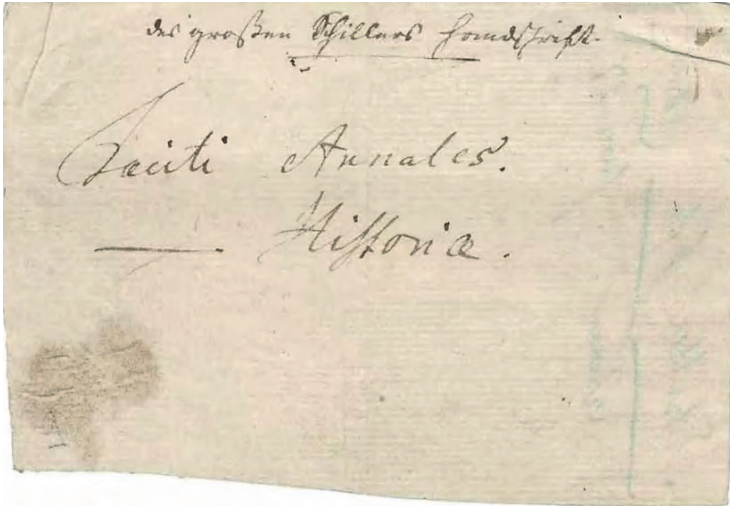 des großen Schillers Handschrift.
Taciti Annales.
— Historiæ.